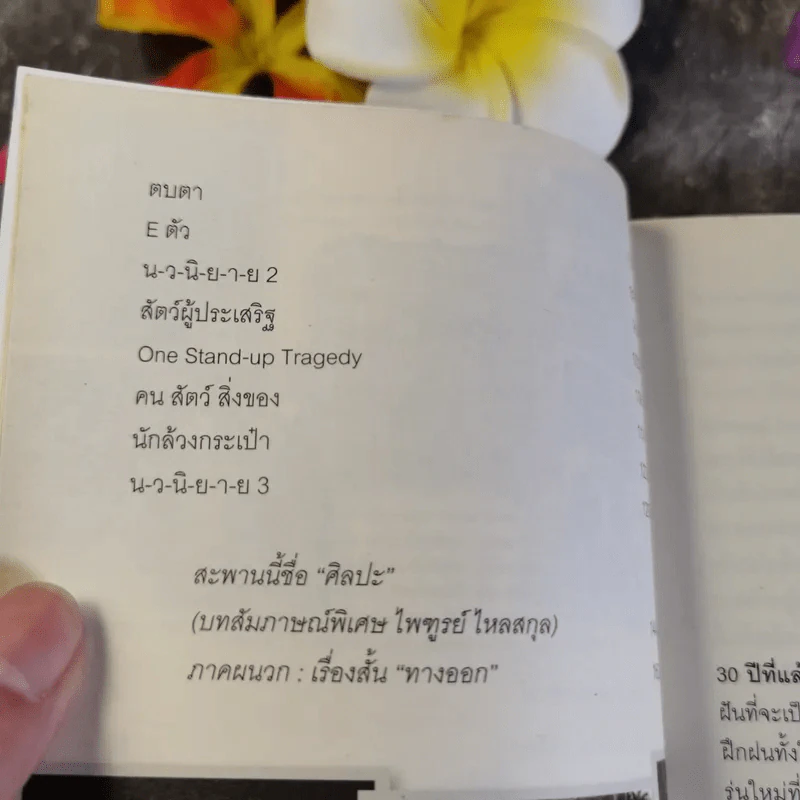 ตบตา
E ตัว
น-ว-นิ-ย-า-ย 2
สัตว์ผู้ประเสริฐ
One Stand-up Tragedy
คน สัตว์ สิ่งของ
นักล้วงกระเป๋า
น-ว-นิ-ย-า-ย 3
สะพานนี้ชื่อ “ศิลปะ”
(บทสัมภาษณ์พิเศษ ไพฑูรย์ ไหลสกุล)
ภาคผนวก : เรื่องสั้น “ทางออก”
30 ปีที่แล้
ฝันที่จะเป็
ฝึกฝนทั้ง
รุ่นใหม่ที่